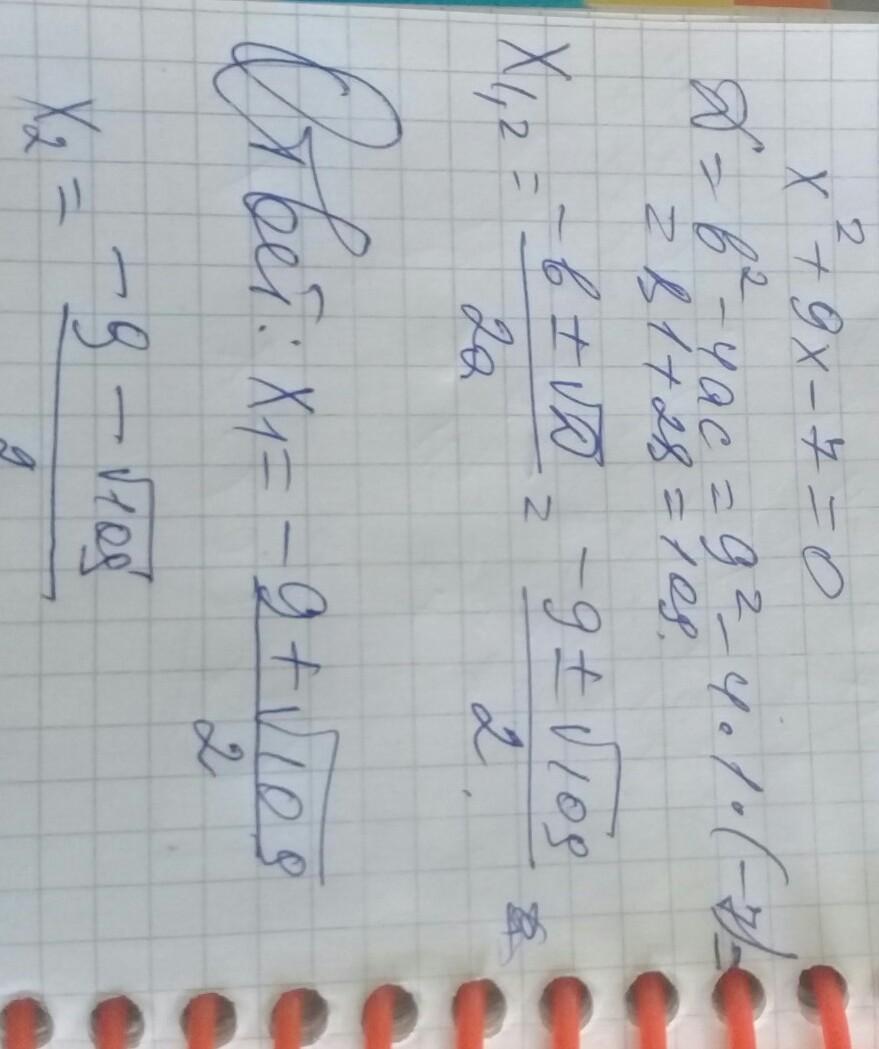 x² + 9x - 7 = 0
D = b² - 4ac = 9² - 4·1·(-7) =
= 81 + 28 = 109.
x₁,₂ = (-b ± √D)/2a = (-9 ± √109)/2.
Ответ: x₁ = (-9 + √109)/2
x₂ = (-9 - √109)/2